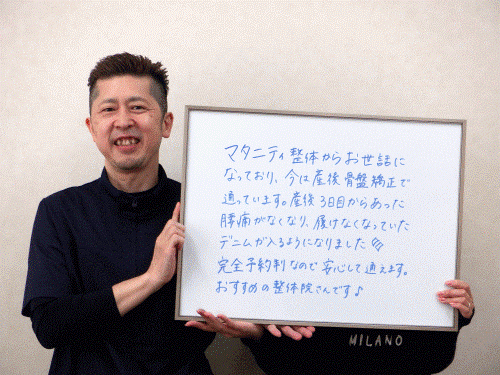 マタニティ整体からお世話に
なっており、今は産後骨盤矯正で
通っています。産後3日目からあった
腰痛がなくなり、履けなくなっていた
デニムが入るようになりました
完全予約制なので安心して通えます。
おすすめの整体院さんです♪
MILANO